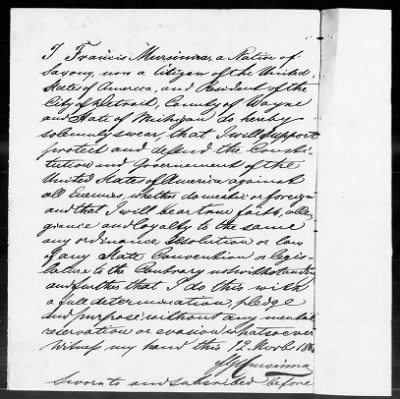 I Francis Mursinna, a Native of
Saxony, now a Citizen of the United
States of America, and Resident of the
City of Detroit, County of Wayne
and State of Michigan do hereby
solemnly swear, that I will support
protect and defend the Consti-
tution and Governement of the
United States of America against
all Enemies, whether domestic or foreign
and that I will bear true faith, alle-
giance and loyalty to the same
any ordinance Resolution or law
of any State Convention or legis-
lature to the Contrary notwithstanding
and further that I do this with
a full determination, pledge
and purpose without any mental
reservation or evasion whatsoever
Witness my hand this 12
Mursinna
Sworn to and subscribed before